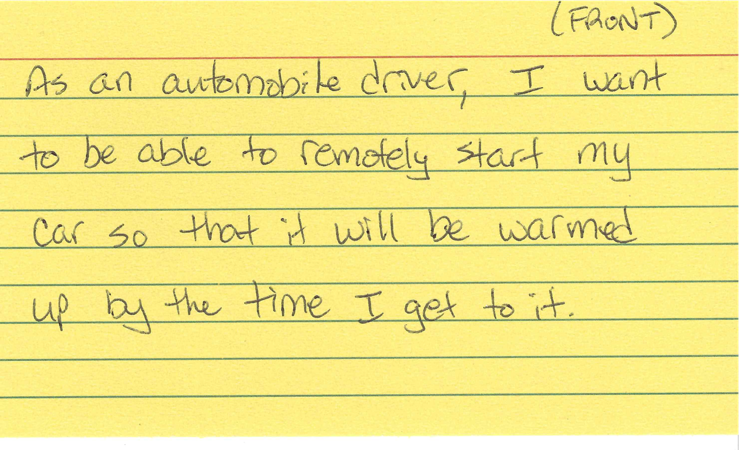 (FRONT)
As an automobile driver, I want
to be able to remotely start my
car so that it will be warmed
up by the time I get to it.